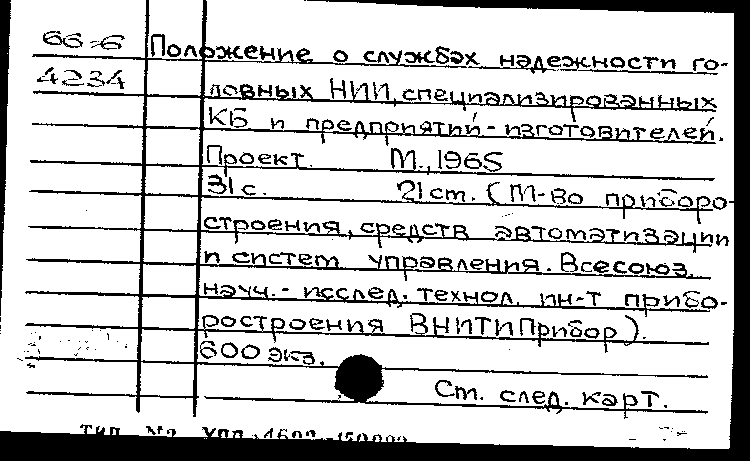 66-6 Положение о службах надежности го-
4234 ловных НИИ, специализированных
КБ и предприятий-изготовителей.
Проект. М., 1965
31 с. 21 ст. (М-во приборо-
строения, средств автоматизации
и систем управления. Всесоюз.
науч.-исслед. технол. ин-т прибо-
ростроения ВНИТИПрибор).
600 экз.
Ст. след. карт.